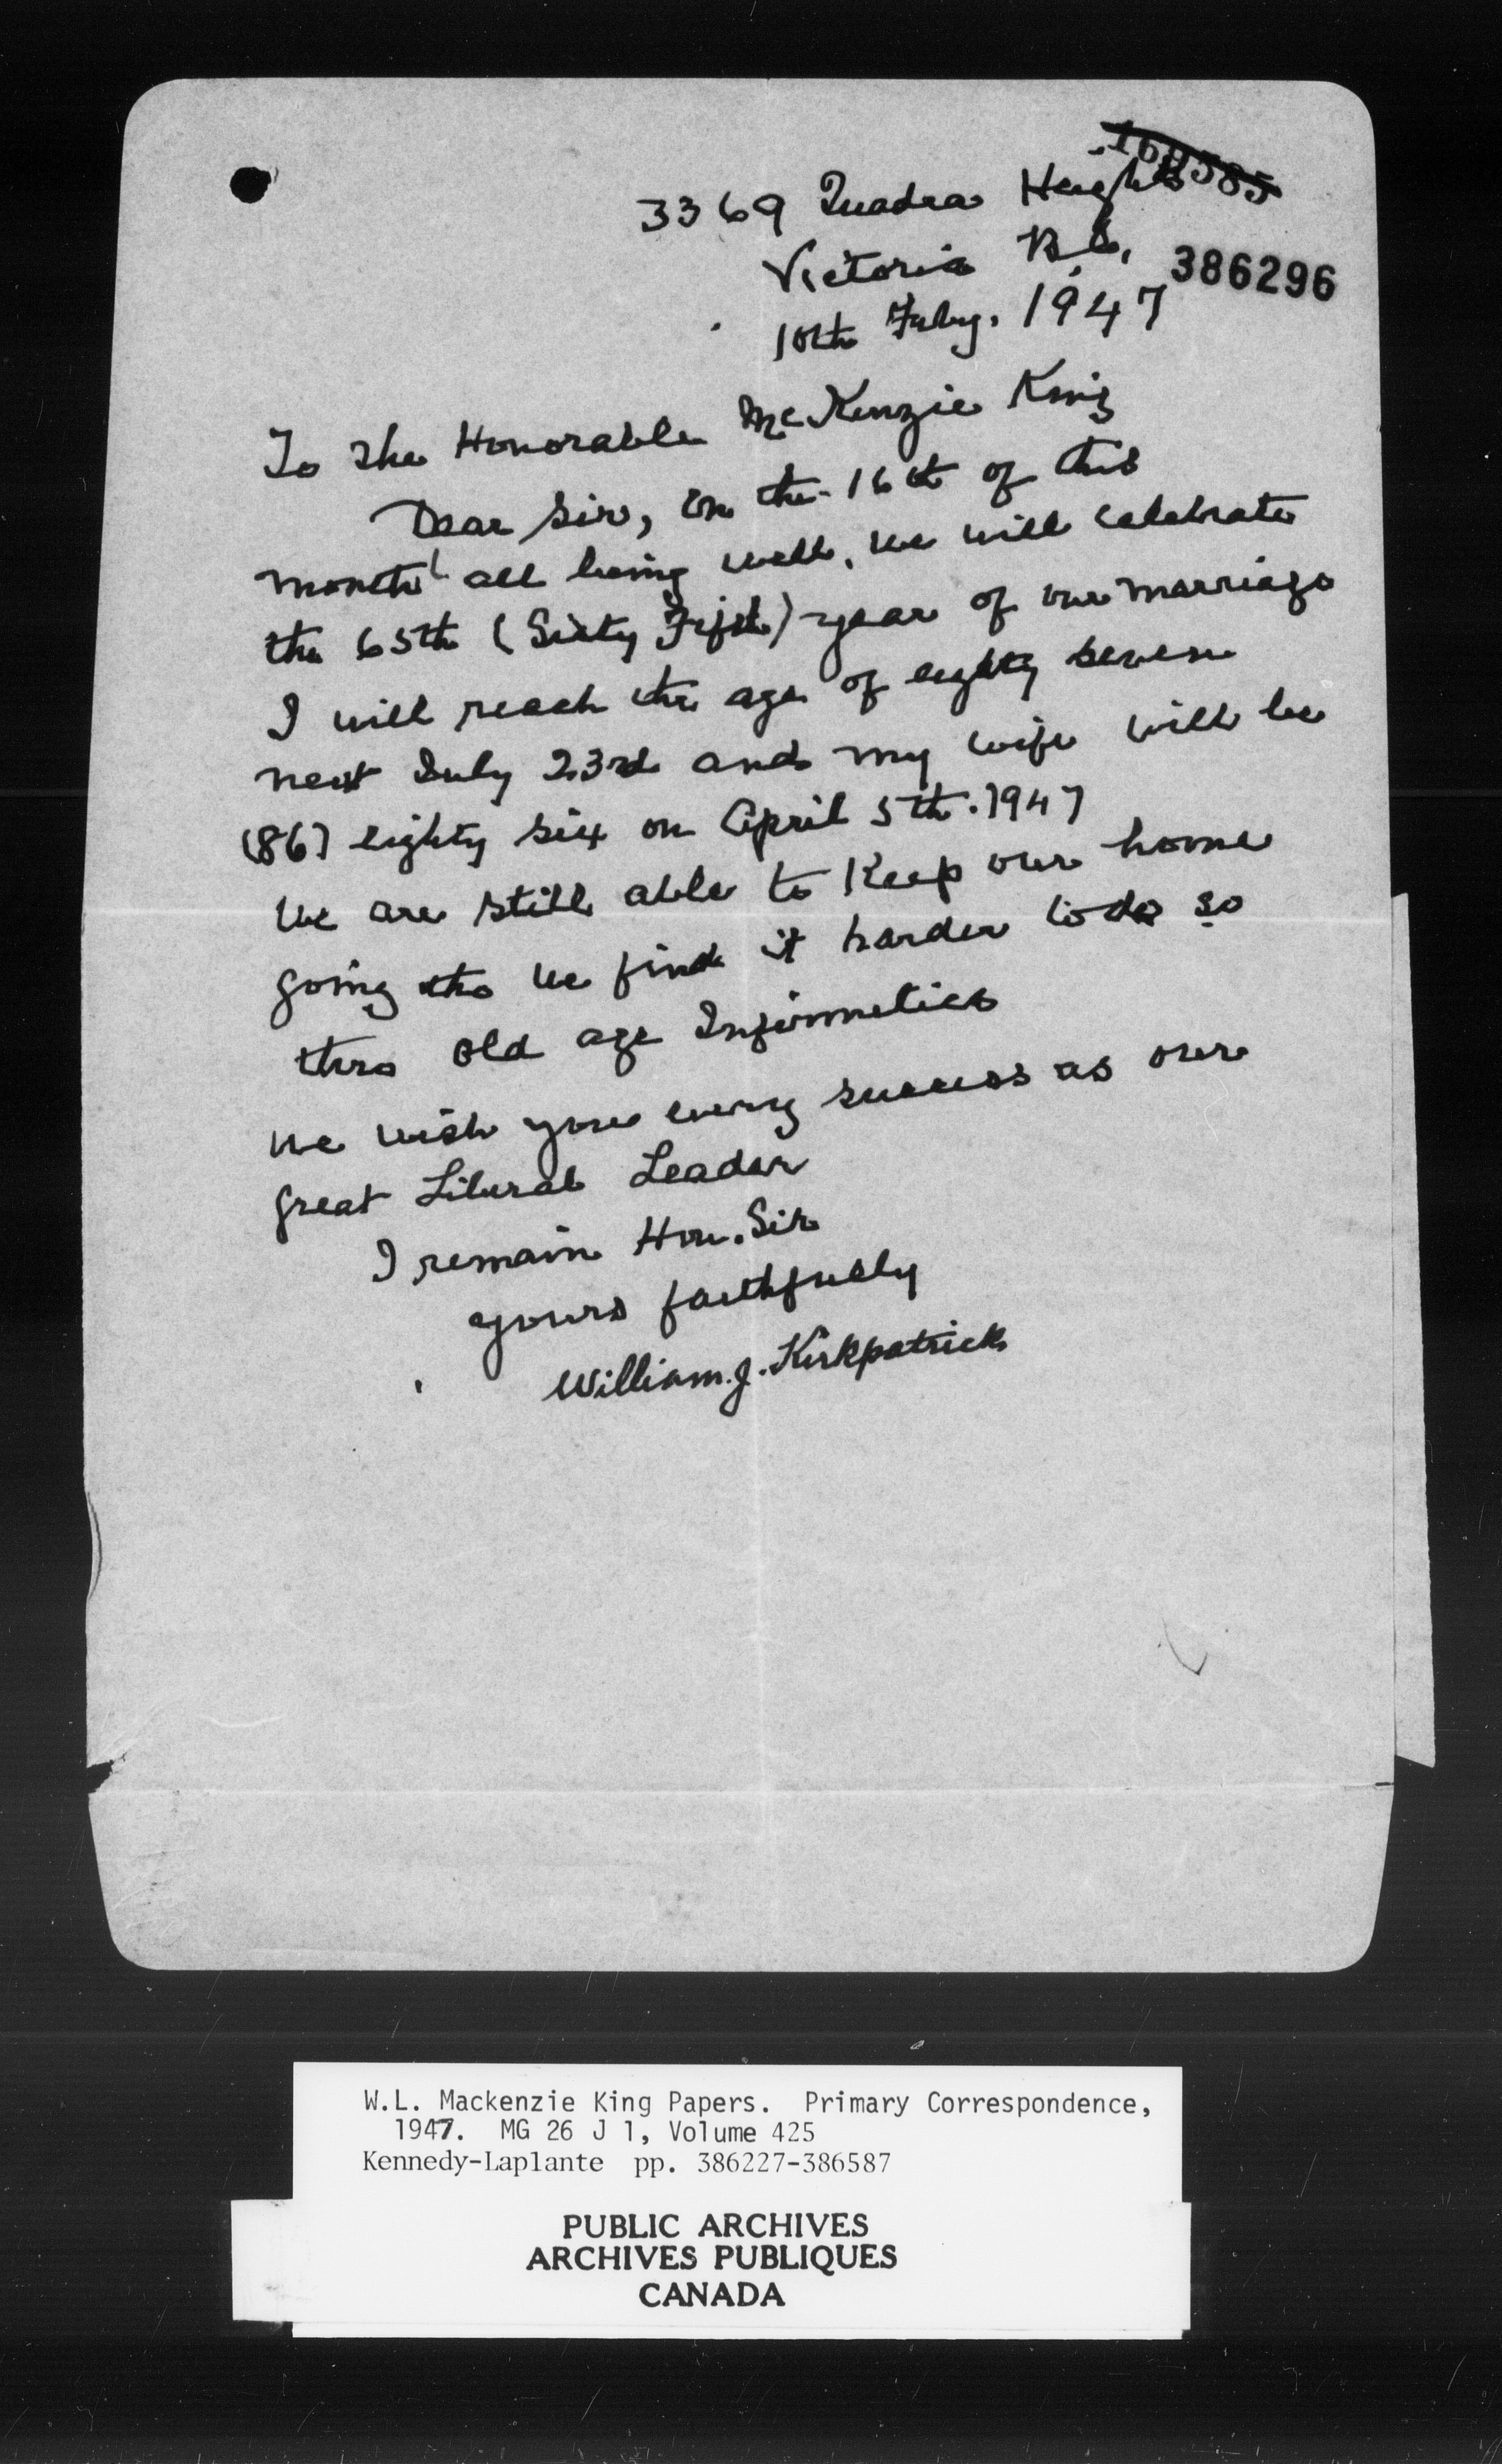 169585
3369 Quadra Heights
Victoria B.C.
386296
10th Feby. 1947
To the Honorable McKenzie King
Dear Sir, on the 16th of this
month all being well, we will celebrate
the 65th (Sixty Fifth) year of our marriage
I will reach the age of eighty seven
next July 23rd and my wife will be
(86) eighty six on April 5th. 1947
We are still able to Keep our home
going tho we find it harder to do so
thro old age Infirmities
We wish you every success as our
great Liberal Leader
I remain Hon. Sir
yours faithfully
William. J. Kirkpatrick
W.L. Mackenzie King Papers. Primary Correspondence,
1947. MG 26 J 1, Volume 425
Kennedy-Laplante pp. 386227-386587
PUBLIC ARCHIVES
ARCHIVES PUBLIQUES
CANADA